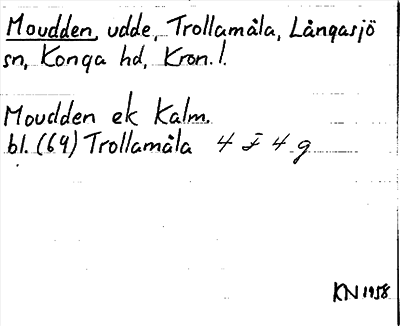 Moudden, udde, Trollamåla, Långasjö
sn, Konga hd, Kron. l.
Moudden ek Kalm.
bl. (69) Trollamåla 4 I 4 g
KN 1958